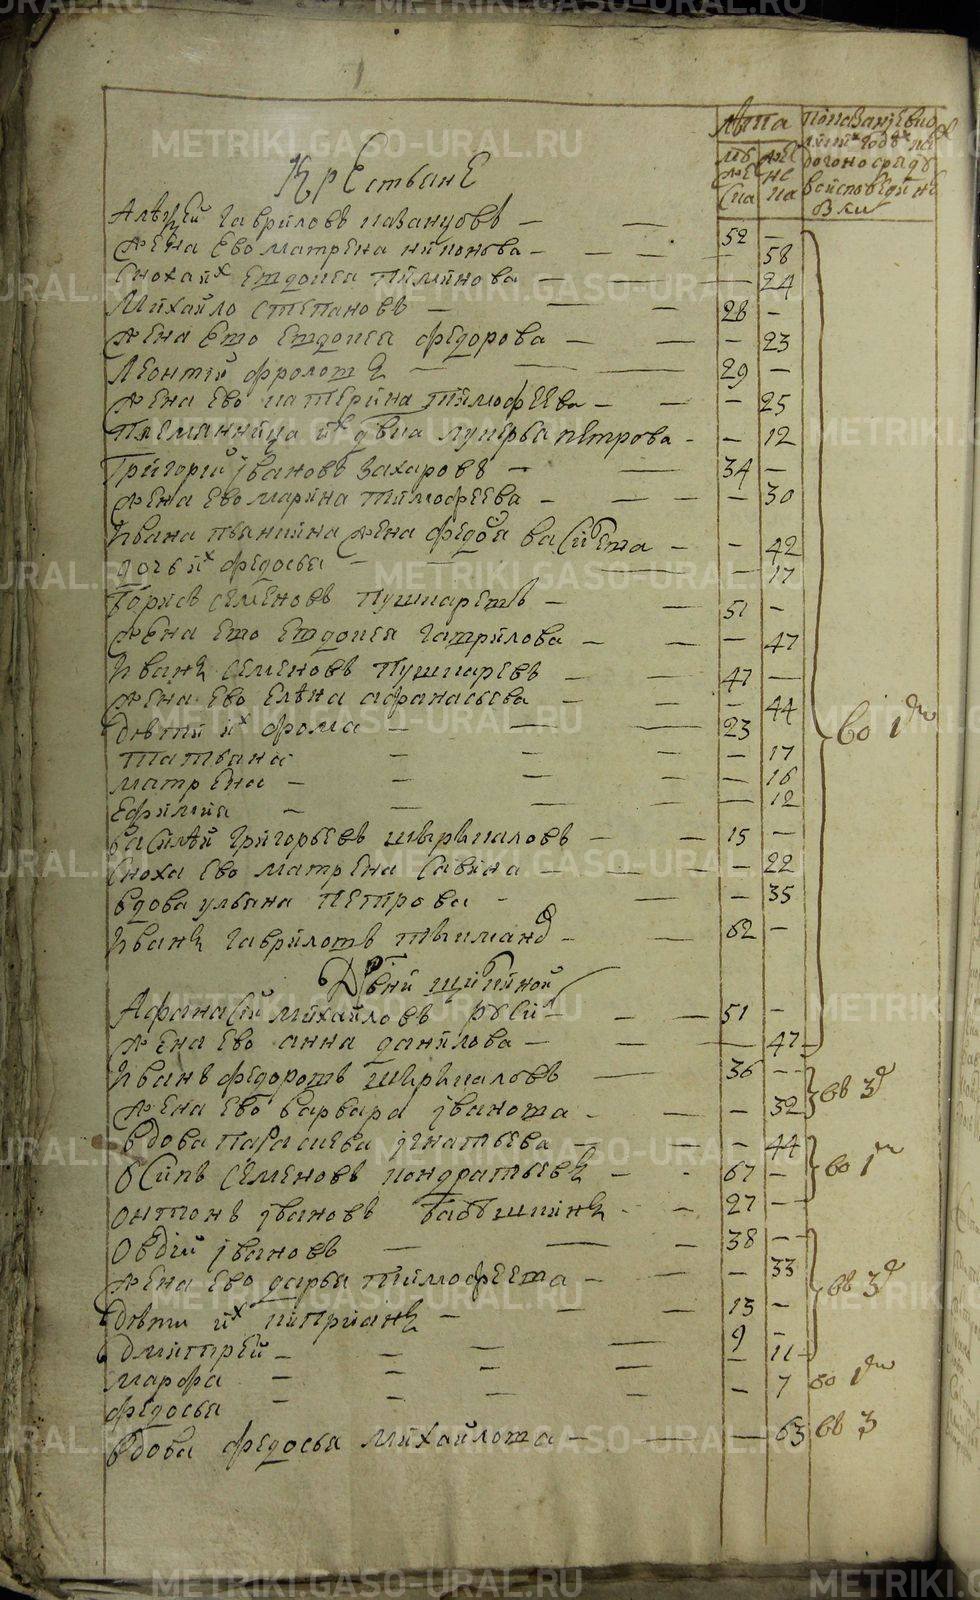 METRIKI.GASO-URAL.RU
лѣта
муже
ска
жен
ска
крестьяне
Алѣѯей гавриловъ казанцовъ — — 52 —
жена ево матрена никонова — — — — 58
сноха ихъ евдокея пиминова — — — 24
Михайло степановъ — — — 28 —
жена ево евдокея федорова — — — 23
леонтей фролов — — — 29 —
жена ево катерина тимофеева — — — 25
племянница их девка лукерья петрова — — 12
григорий iвановъ захаровъ — — 34 —
жена ево марина тимофеева — — — 30
Ивана жена федо васи — — 42
дочь ихъ федосья — — — 17
борисъ семеновъ пушкаревъ — — 51 —
жена ево евдокея гаврилова — — — 47
Иванъ семеновъ пушкаревъ — — 47 —
жена ево елѣна афанасьева — — — 44
дѣти ихъ фома — — — 23
татьяна — — — — 17
матрена — — — — — 16
ефимия — — — — — 12
василѣй григорьевъ — — 15 —
сноха ево матрена савина — — — — 22
вдова ульяна петрова — — — 35
Иванъ гавриловъ — — 62 —
Дрвни
Афанасий михайловъ — — 51 —
жена ево анна данилова — — — 47
во 1
Иванъ федоровъ — 36 —
жена ево варвара iванова — — — 32
въ 3
вдова параскева игнатьева — — 44
Осипъ семеновъ кондратьевъ — - 67 —
онтонъ iвановъ бабушкинъ - — 27 —
во 1
Овдiй iвановъ — — — 38 —
жена ево дарья тимофеева — — — 33
дѣти ихъ киприянъ — — — 13 —
дмитрей — — — — 9 —
марфа — — — — — 11
въ 3
федосья — — — — — 7 во 1
вдова федосья михайлова — — — 63 въ 3